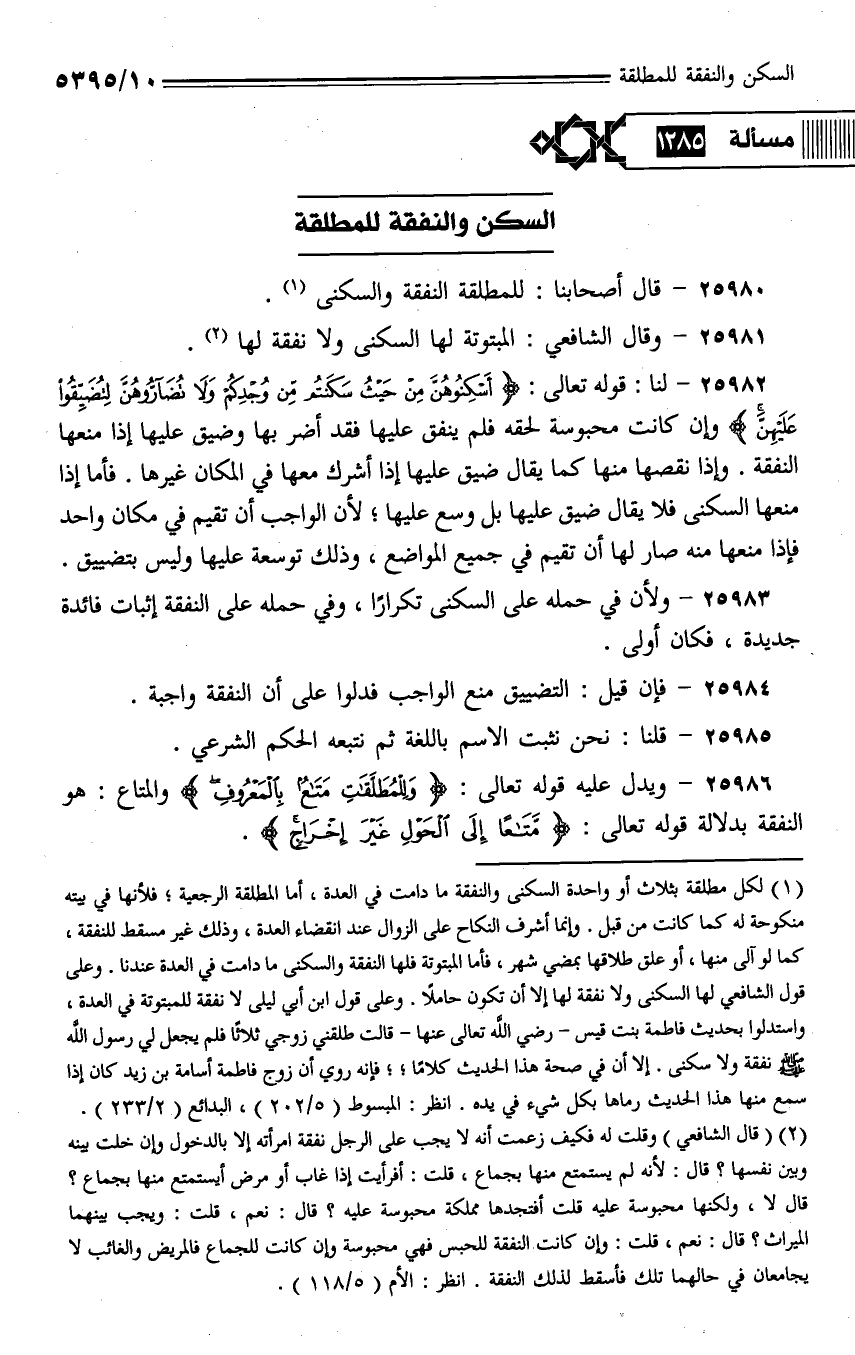 السكن والنفقة للمطلقة ٥٣٩٥/١٠
مسألة ١٢٨٥
السكن والنفقة للمطلقة
٢٥٩٨٠ - قال أصحابنا : للمطلقة النفقة والسكنى (١) .
٢٥٩٨١ - وقال الشافعي : المبتوتة لها السكنى ولا نفقة لها (٢) .
٢٥٩٨٢ - لنا : قوله تعالى : ﴿ أَسْكِنُوهُنَّ مِنْ حَيْثُ سَكَنتُم مِّن وُجْدِكُمْ وَلَا تُضَآرُّوهُنَّ لِتُضَيِّقُوا۟
عَلَيْهِنَّ ۚ ﴾ وإن كانت محبوسة لحقه فلم ينفق عليها فقد أضر بها وضيق عليها إذا منعها
النفقة . وإذا نقصها منها كما يقال ضيق عليها إذا أشرك معها في المكان غيرها . فأما إذا
منعها السكنى فلا يقال ضيق عليها بل وسع عليها ؛ لأن الواجب أن تقيم في مكان واحد
فإذا منعها منه صار لها أن تقيم في جميع المواضع ، وذلك توسعة عليها وليس بتضييق .
٢٥٩٨٣ - ولأن في حمله على السكنى تكرارًا ، وفي حمله على النفقة إثبات فائدة
جديدة ، فكان أولى .
٢٥٩٨٤ - فإن قيل : التضييق منع الواجب فدلوا على أن النفقة واجبة .
٢٥٩٨٥ - قلنا : نحن نثبت الاسم باللغة ثم نتبعه الحكم الشرعي .
٢٥٩٨٦ - ويدل عليه قوله تعالى : ﴿ وَلِلْمُطَلَّقَـٰتِ مَتَـٰعٌۢ بِالْمَعْرُوفِ ۖ ﴾ والمتاع : هو
النفقة بدلالة قوله تعالى : ﴿ مَّتَـٰعًا إِلَى الْحَوْلِ غَيْرَ إِخْرَاجٍ ۚ ﴾ .
(١) لكل مطلقة بثلاث أو واحدة السكنى والنفقة ما دامت في العدة ، أما المطلقة الرجعية ؛ فلأنها في بيته
منكوحة له كما كانت من قبل . وإنما أشرف النكاح على الزوال عند انقضاء العدة ، وذلك غير مسقط للنفقة ،
كما لو آلى منها ، أو علق طلاقها بمضي شهر ، فأما المبتوتة فلها النفقة والسكنى ما دامت في العدة عندنا . وعلى
قول الشافعي لها السكنى ولا نفقة لها إلا أن تكون حاملًا . وعلى قول ابن أبي ليلى لا نفقة للمبتوتة في العدة ،
واستدلوا بحديث فاطمة بنت قيس - رضي اللَّه تعالى عنها - قالت طلقني زوجي ثلاثًا فلم يجعل لي رسول اللَّه
ﷺ نفقة ولا سكنى . إلا أن في صحة هذا الحديث كلامًا ؛ ؛ فإنه روي أن زوج فاطمة أسامة بن زيد كان إذا
سمع منها هذا الحديث رماها بكل شيء في يده . انظر : المبسوط ( ٢٠٢/٥ ) ، البدائع ( ٢٣٣/٢ ) .
(٢) ( قال الشافعي ) وقلت له فكيف زعمت أنه لا يجب على الرجل نفقة امرأته إلا بالدخول وإن خلت بينه
وبين نفسها ؟ قال : لأنه لم يستمتع منها بجماع ، قلت : أفرأيت إذا غاب أو مرض أيستمتع منها بجماع ؟
قال لا ، ولكنها محبوسة عليه قلت أفتجدها مملكة محبوسة عليه ؟ قال : نعم ، قلت : ويجب بينهما
الميراث ؟ قال : نعم ، قلت : وإن كانت النفقة للحبس فهي محبوسة وإن كانت للجماع فالمريض والغائب لا
يجامعان في حالهما تلك فأسقط لذلك النفقة . انظر : الأم ( ١١٨/٥ ) .